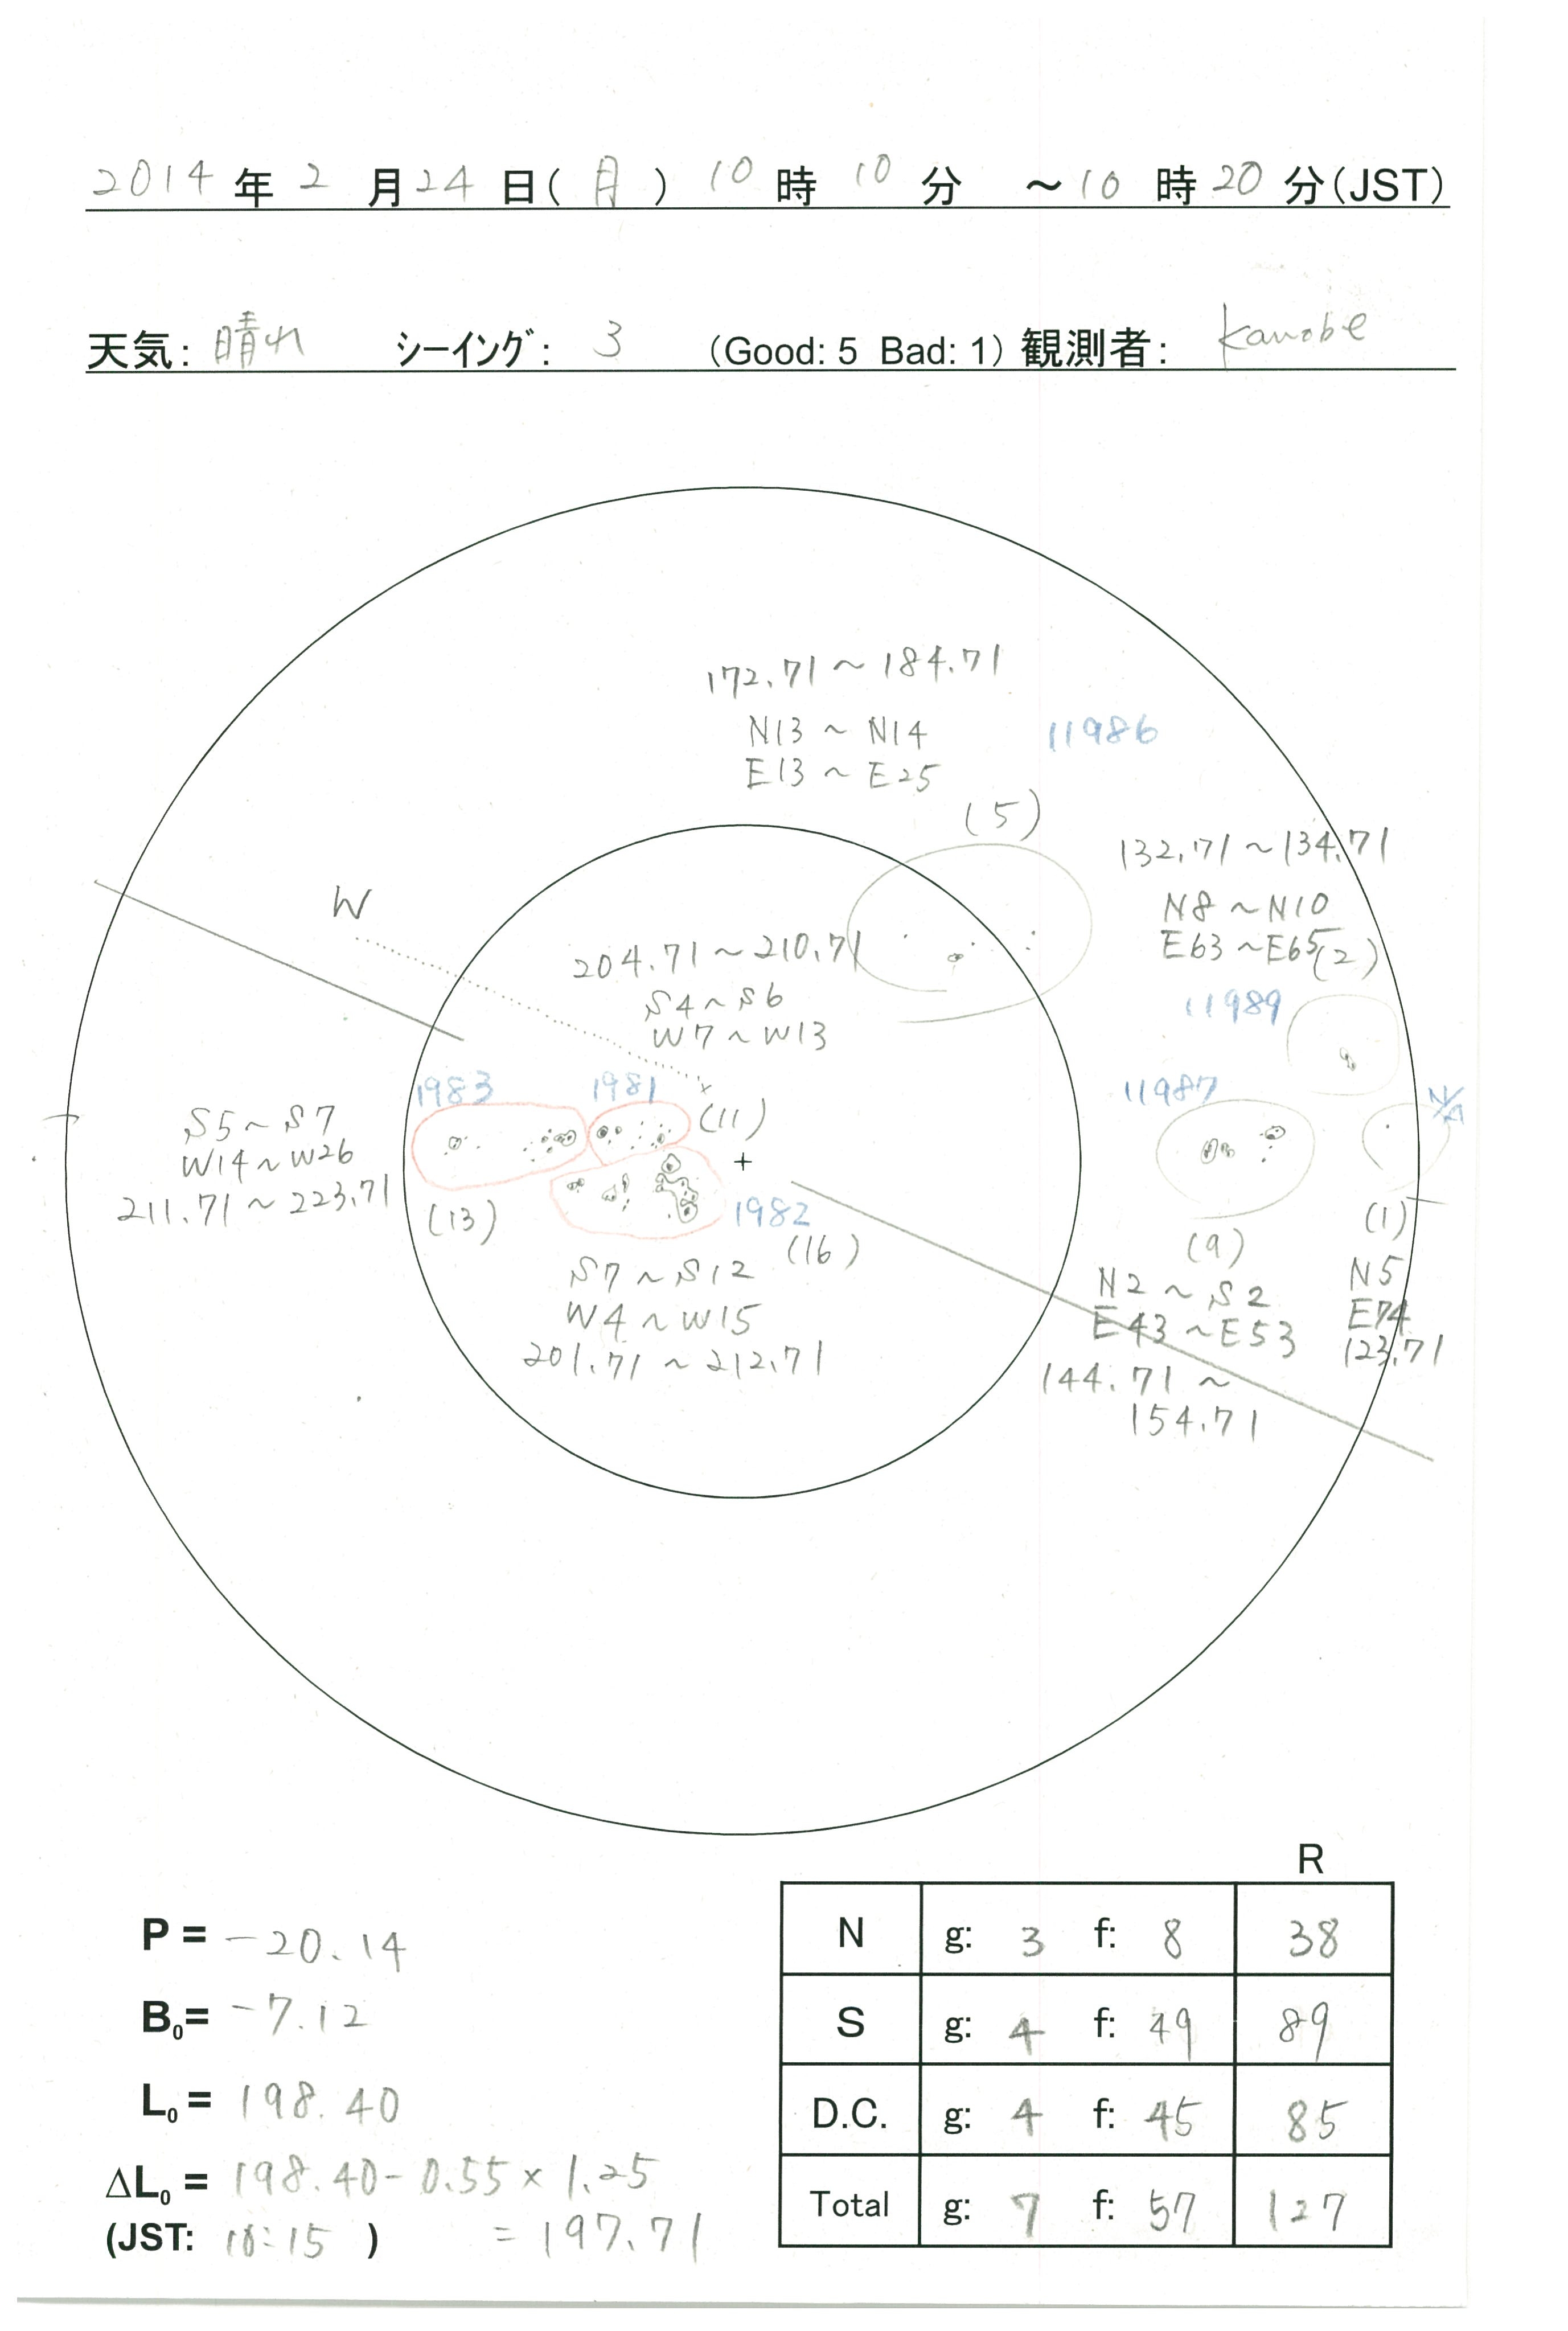 2014年2月24日(月)10時10分 ～10時20分(JST)
天気: 晴れ ｼｰｲﾝｸﾞ: 3 (Good: 5 Bad: 1) 観測者: Kanobe
172.71～184.71
N13～N14
E13～E25
11986
(5)
132.71～134.71
N8～N10
E63～E65
(2)
11989
W
204.71～210.71
S4～S6
W7～W13
1983
1981
(11)
11987
S5～S7
W14～W26
211.71～223.71
(13)
1982
(16)
S7～S12
W4～W15
201.71～212.71
(9)
N2～S2
E43～E53
144.71～
154.71
(1)
N5
E74
123.71
R
N g: 3 f: 8 38
S g: 4 f: 49 89
D.C. g: 4 f: 45 85
Total g: 7 f: 57 127
P = -20.14
B₀= -7.12
L₀ = 198.40
ΔL₀ = 198.40-0.55×1.25
(JST: 10:15 ) =197.71